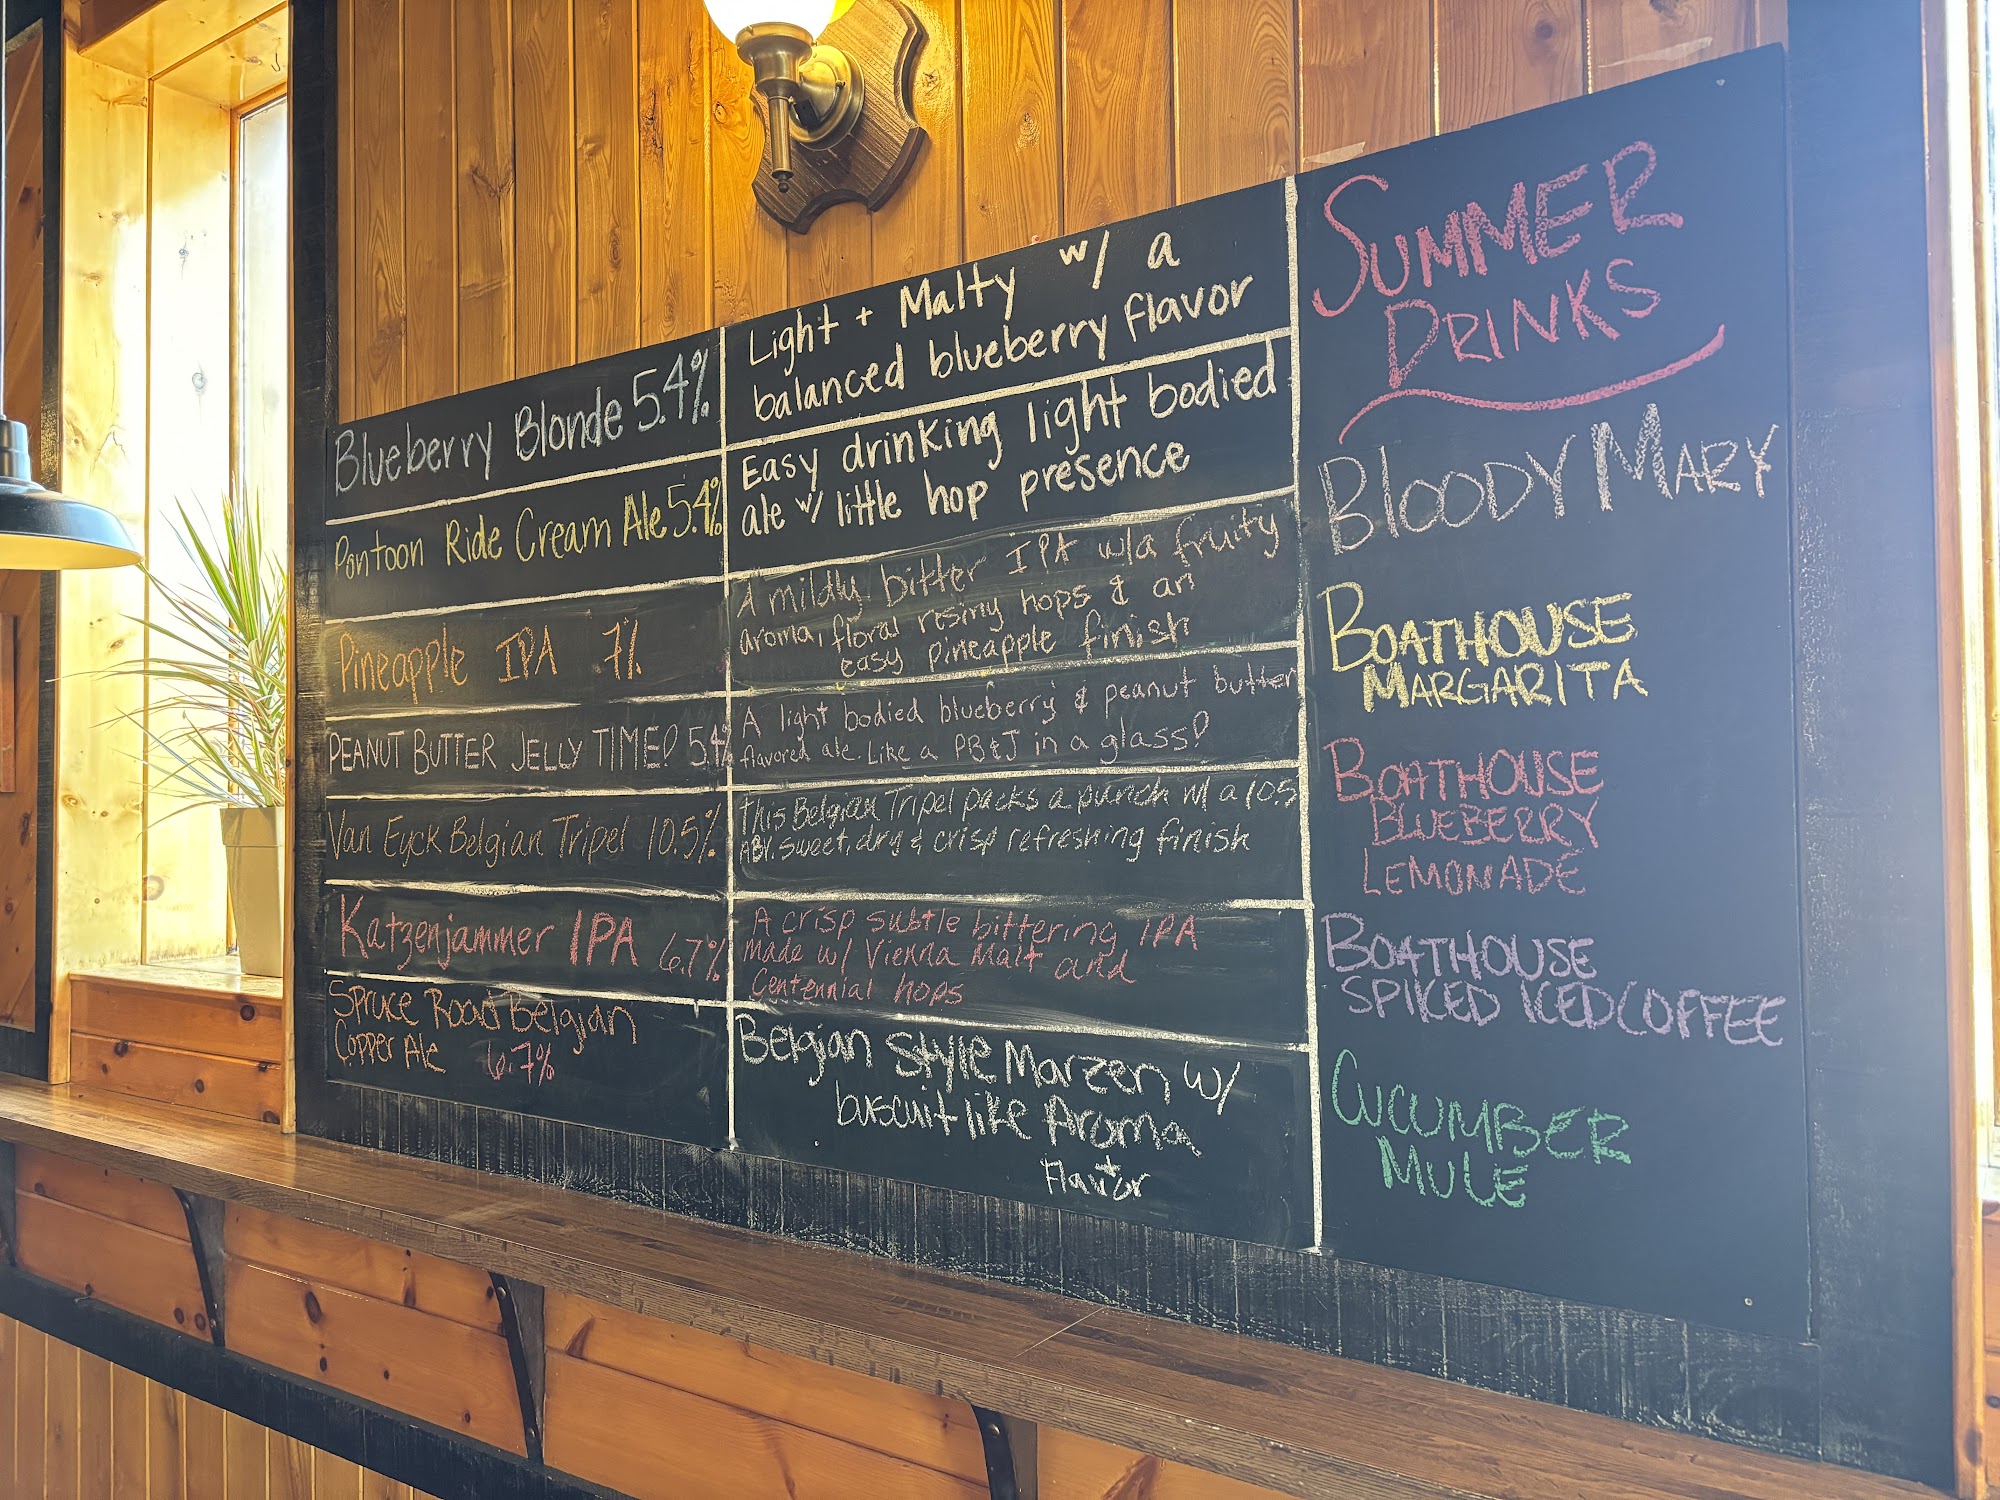 Blueberry Blonde 5.4%
Light + Malty w/ a
balanced blueberry flavor
Pontoon Ride Cream Ale 5.4%
Easy drinking light bodied
ale w/ little hop presence
Pineapple IPA 7%
A mildly bitter IPA w/a fruity
aroma, floral resiny hops & an
easy pineapple finish
PEANUT BUTTER JELLY TIME! 5.4%
A light bodied blueberry & peanut butter
flavored ale. Like a PB&J in a glass!
Van Eyck Belgian Tripel 10.5%
This Belgian Tripel packs a punch w/ a 10.5
ABV. sweet, dry & crisp refreshing finish
Katzenjammer IPA 6.7%
A crisp subtle bittering IPA
Made w/ Vienna Malt and
Centennial hops
Spruce Road Belgian
Copper Ale 6.7%
Belgian Style Marzen w/
buscuit like Aroma
Flavor
SUMMER
DRINKS
BLOODY MARY
BOATHOUSE
MARGARITA
BOATHOUSE
BLUEBERRY
LEMONADE
BOATHOUSE
SPIKED ICED COFFEE
CUCUMBER
MULE